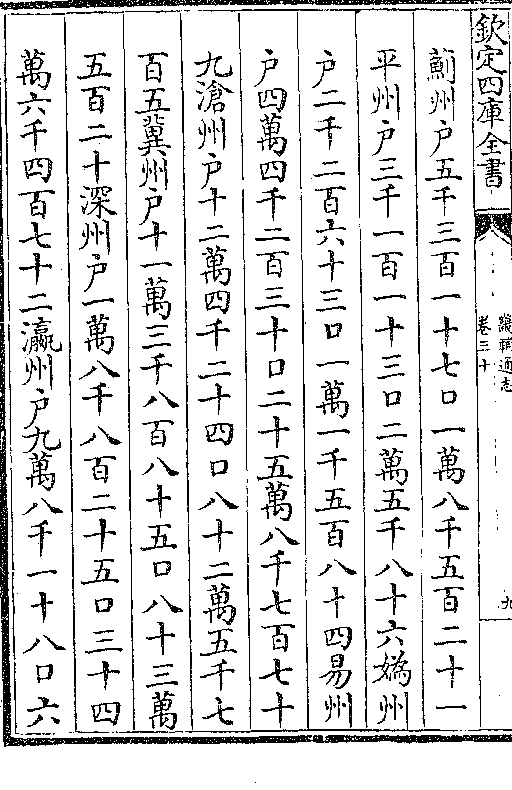 欽定四庫全書
畿輔通志
卷三十
九
薊州户五千三百一十七口一萬八千五百二十一
平州户三千一百一十三口二萬五千八十六嬀州
户二千二百六十三口一萬一千五百八十四易州
户四萬四千二百三十口二十五萬八千七百七十
九滄州户十二萬四千二十四口八十二萬五千七
百五冀州户十一萬三千八百八十五口八十三萬
五百二十深州户一萬八千八百二十五口三十四
萬六千四百七十二瀛州户九萬八千一十八口六